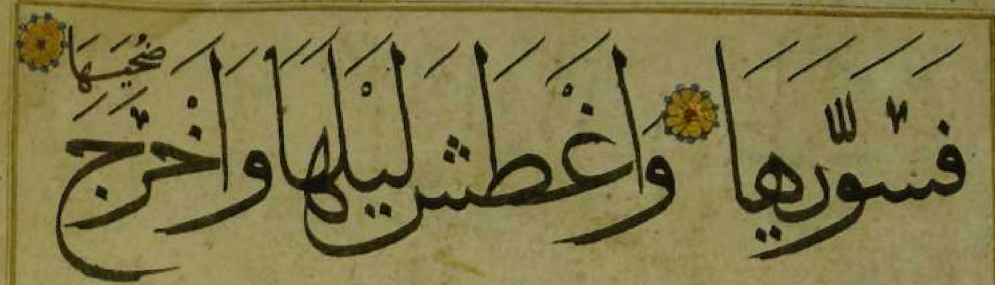 فَسَوّٰيهَا وَاَغْطَشَ لَيْلَهَا وَاَخْرَجَ ضُحٰيهَا